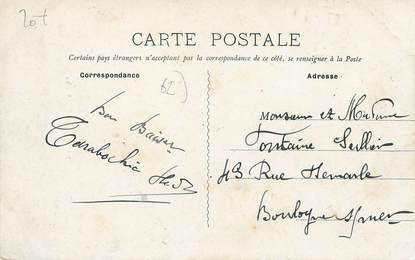 20+
CARTE POSTALE
Certains pays étrangers n'acceptant pas la correspondance de ce côté, se renseigner à la Poste
Correspondance
Adresse
62
Bon Baiser
Monsieur et Madame
Fontaine
43 Rue
Boulogne s/mer